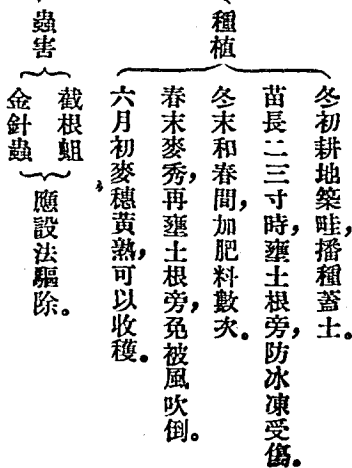 種植
冬初耕地築畦，播種蓋土。
苗長二三寸時，壅土根旁，防冰凍受傷。
冬末和春間，加肥料數次。
春末麥秀，再壅土根旁，免被風吹倒。
六月初麥穗黃熟，可以收穫。
蟲害
截根蛆
金針蟲
應設法驅除。